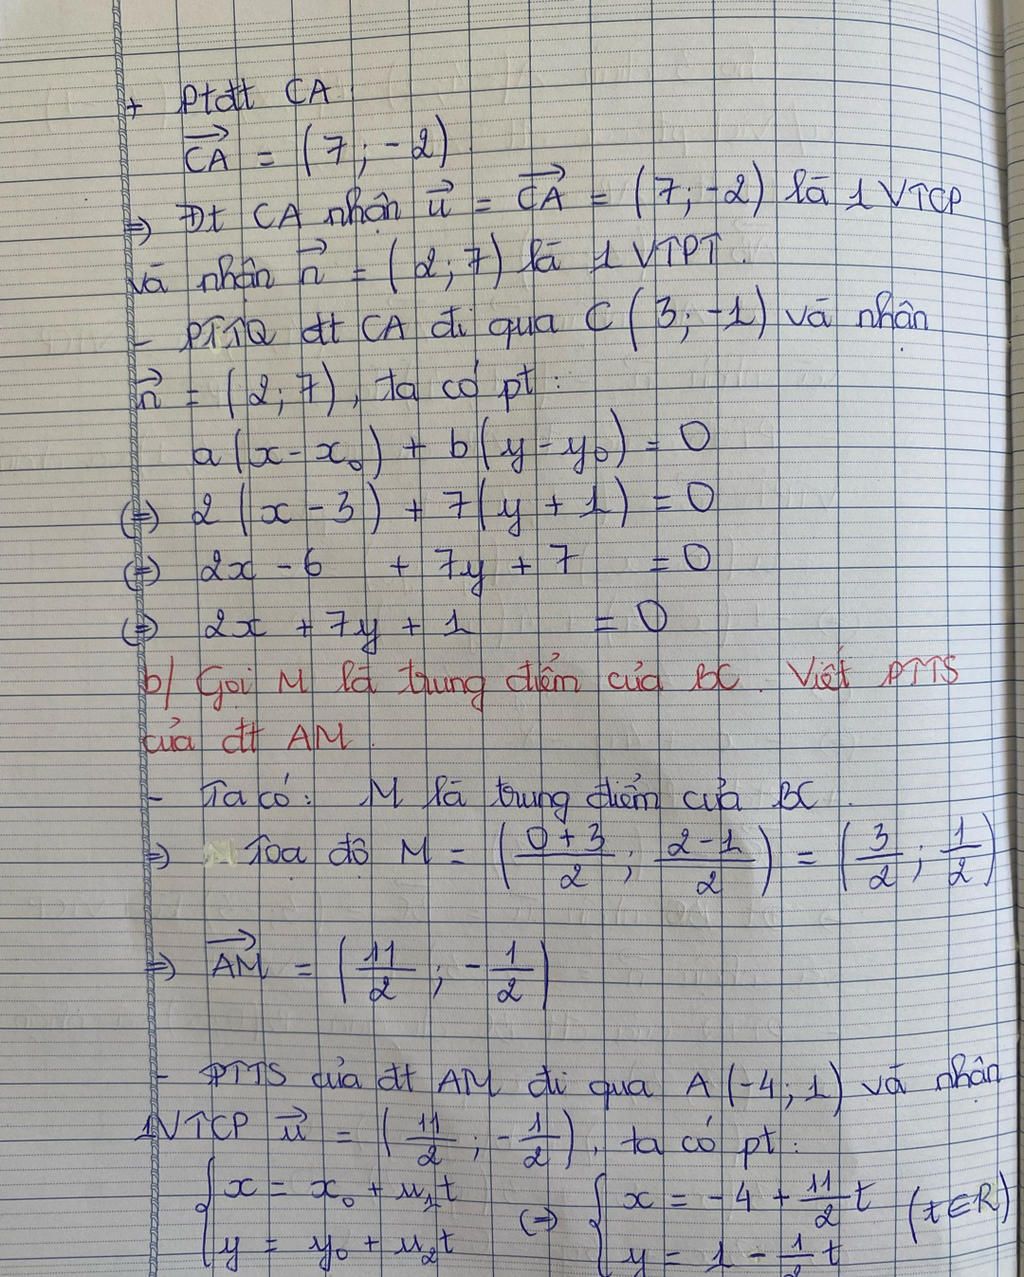 + Ptđt CA
$\overrightarrow{CA}$ = (7; -2)
=> Đt CA nhận $\vec{u}$ = $\overrightarrow{CA}$ = (7; -2) là 1 VTCP
và nhận $\vec{n}$ = (2; 7) là 1 VTPT.
- PTTQ đt CA đi qua C (3; -1) và nhận
$\vec{n}$ = (2; 7), ta có pt:
a(x - x₀) + b(y - y₀) = 0
(=) 2 (x - 3) + 7(y + 1) = 0
(=) 2x - 6 + 7y + 7 = 0
(=) 2x + 7y + 1 = 0
b/ Gọi M là trung điểm của BC. Viết PTTS
của đt AM.
- Ta có: M là trung điểm của BC.
=> Tọa độ M = $\left(\frac{0+3}{2}; \frac{2-1}{2}\right)$ = $\left(\frac{3}{2}; \frac{1}{2}\right)$
=> $\overrightarrow{AM}$ = $\left(\frac{11}{2}; -\frac{1}{2}\right)$
- PTTS của đt AM đi qua A (-4; 1) và nhận
1VTCP $\vec{u}$ = $\left(\frac{11}{2}; -\frac{1}{2}\right)$, ta có pt:
{ x = x₀ + u₁t (=) { x = -4 + $\frac{11}{2}$t (t∈R)
y = y₀ + u₂t y = 1 - $\frac{1}{2}$t